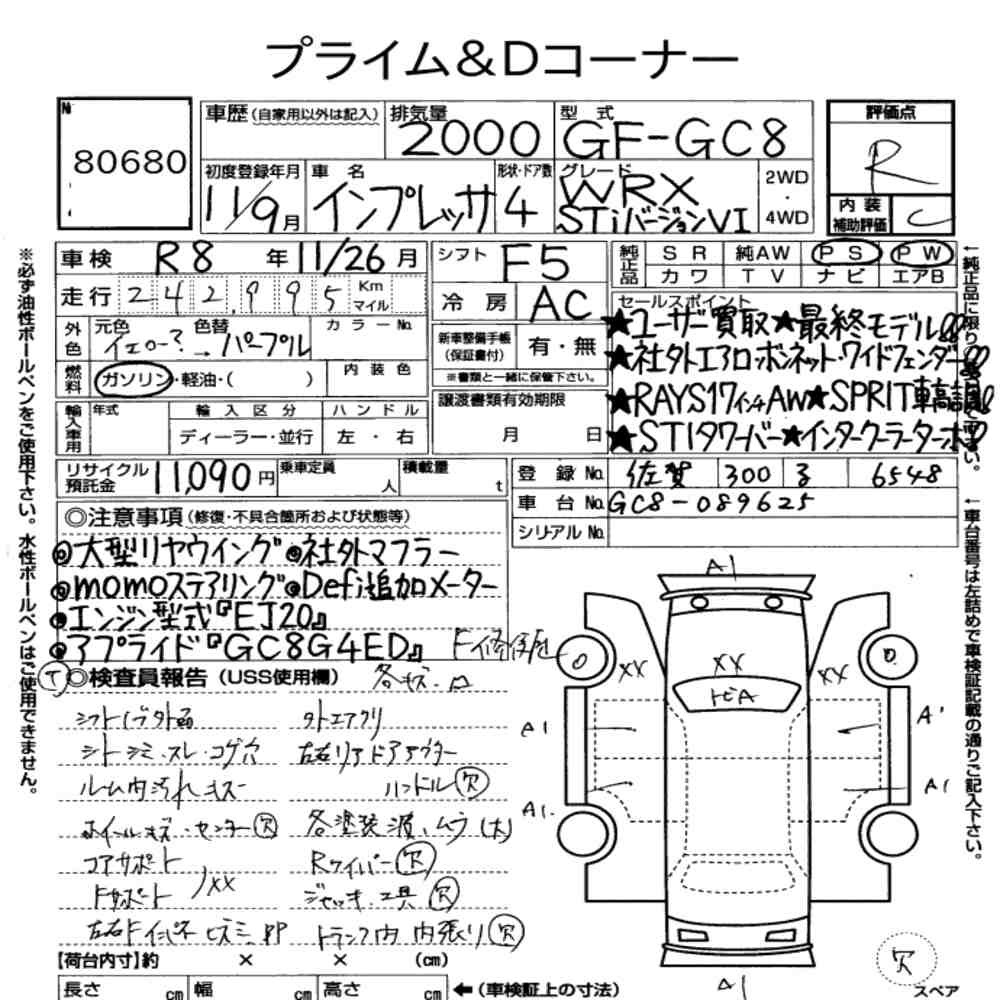 プライム&Dコーナー
№ 80680
車歴(自家用以外は記入) 排気量 2000 型式 GF-GC8 評価点 R
初度登録年月 11/9月 車名 インプレッサ 形状・ドア数 4 グレード WRX STiバージョンVI 2WD・4WD
内装補助評価 C
車検 R8年11/26月 シフト F5 純正品 SR 純AW PS PW
カワ TV ナビ エアB
走行 242,995 Km マイル 冷房 AC
セールスポイント
★ユーザー買取★最終モデル!!
★社外エアロ・ボンネット・ワイドフェンダー!!
★RAYS17インチAW★SPRIT車高調!!
★STIタワーバー★インタークーラーターボ!!
外色 元色 イエロー? 色替 → パープル カラーNo.
燃料 ガソリン・軽油・( ) 内装色
新車整備手帳(保証書付) 有・無
※書類と一緒に保管下さい。
譲渡書類有効期限 月 日
輸入車用 年式 輸入区分 ハンドル
ディーラー・並行 左・右
リサイクル預託金 11,090円 乗車定員 人 積載量 t
登録No. 佐賀 300 る 6548
車台No. GC8-089625
シリアルNo.
◎注意事項(修復・不具合箇所および状態等)
◎大型リヤウイング◎社外マフラー
◎momoステアリング◎Defi追加メーター
◎エンジン型式『EJ20』
◎アプライド『GC8G4ED』 F修復歴
◎検査員報告(USS使用欄) 各キズ・凹
外エアクリ
シートシミ・スレ・コゲ穴
ルーム内汚れキズ ハンドル欠
ホイールキズ・センター欠 各塗装渡・ムラ(大)
コアサポート Rワイパー欠
Fサポート XX ジャッキ・工具欠
トランク内 内張り欠
【荷台内寸】約 × × (cm)
長さ cm 幅 cm 高さ cm ←(車検証上の寸法)
※必ず油性ボールペンをご使用下さい。水性ボールペンはご使用できません。
←車台番号は左詰めで車検証記載の通りご記入下さい。
A1
XX XX XX
トビA
A1 A1
A1 A1
A1
欠
スペア